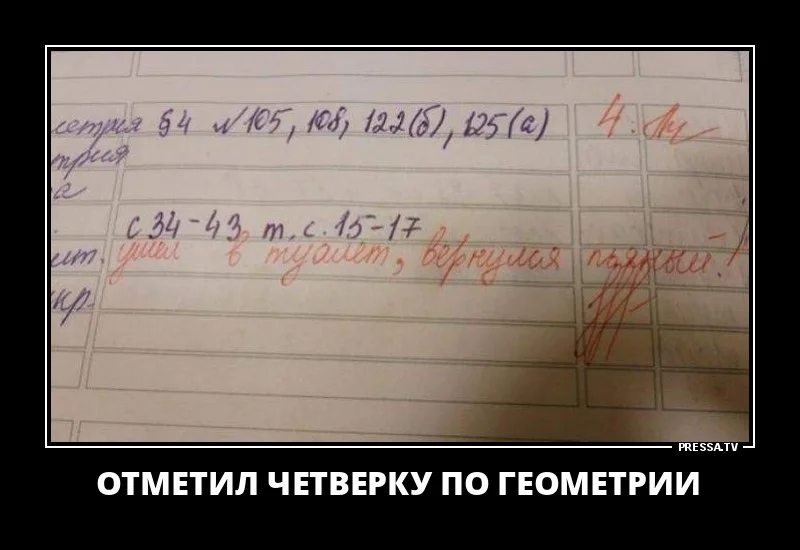 метрия §4 №105, 108, 122(б), 125(а) 4.
трия
а
с 34-43 т. с. 15-17
ит. ушел в туалет, вернулся пьяный!
кр.
PRESSA.TV
ОТМЕТИЛ ЧЕТВЕРКУ ПО ГЕОМЕТРИИ